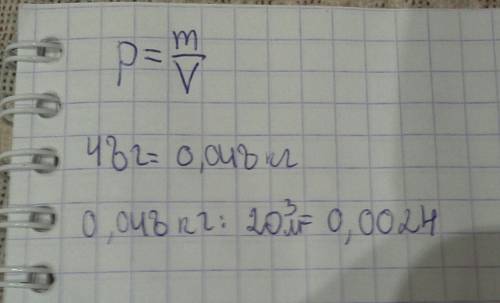 p = m/V
48г = 0,048 кг
0,048 кг : 20 м³ = 0,0024